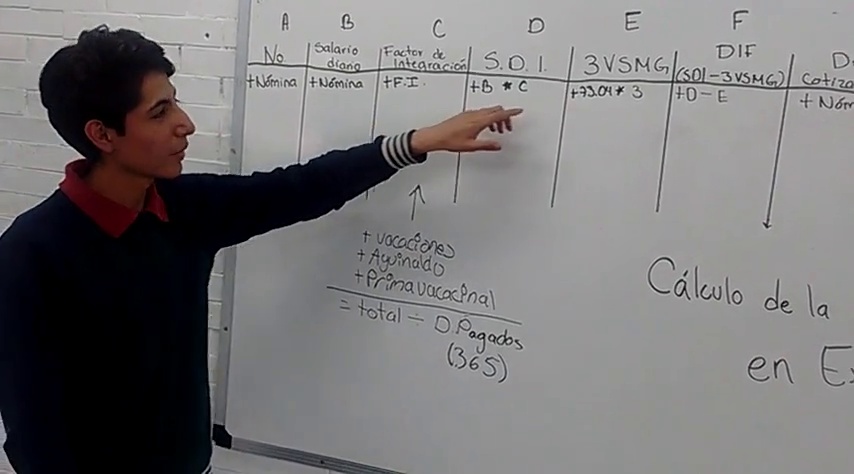 A B C D E F
No
Salario
diario
Factor de
Integración
S.D.I.
3VSMG
DIF
(SDI-3VSMG)
Cotiza
+Nómina
+Nómina
+F.I.
+B * C
+73.04* 3
+D-E
+ Nóm
+ vacaciones
+ Aguinaldo
+Primavacacinal
= total ÷ D.Pagados
(365)
Cálculo de la
en Ex